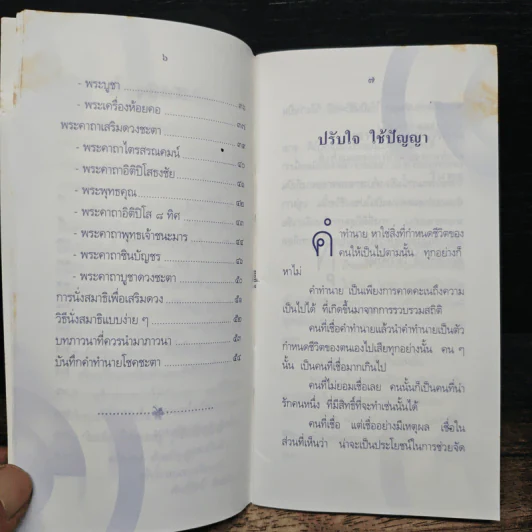 ๖
- พระบูชา
- พระเครื่องห้อยคอ ๓๗
พระคาถาเสริมดวงชะตา ๓๙
- พระคาถาไตรสรณคมน์ ๔๐
- พระคาถาอิติปิโสธงชัย ๔๑
- พระพุทธคุณ ๔๒
- พระคาถาอิติปิโส ๘ ทิศ ๔๓
- พระคาถาพุทธเจ้าชนะมาร ๔๔
- พระคาถาชินบัญชร ๔๗
- พระคาถาบูชาดวงชะตา ๕๐
การนั่งสมาธิเพื่อเสริมดวง ๕๑
วิธีนั่งสมาธิแบบง่าย ๆ ๕๒
บทภาวนาที่ควรนำมาภาวนา ๕๓
บันทึกคำทำนายโชคชะตา ๕๔
๗
ปรับใจ ใช้ปัญญา
คำทำนาย หาใช่สิ่งที่กำหนดชีวิตของ
คนให้เป็นไปตามนั้น ทุกอย่างก็
หาไม่
คำทำนาย เป็นเพียงการคาดคะเนถึงความ
เป็นไปได้ ที่เกิดขึ้นมาจากการรวบรวมสถิติ
คนที่เชื่อคำทำนายแล้วนำคำทำนายเป็นตัว
กำหนดชีวิตของตนเองไปเสียทุกอย่างนั้น คน ๆ
นั้น เป็นคนที่เชื่อมากเกินไป
คนที่ไม่ยอมเชื่อเลย คนนั้นก็เป็นคนที่น่า
รักคนหนึ่ง ที่มีสิทธิ์ที่จะทำเช่นนั้นได้
คนที่เชื่อ แต่เชื่ออย่างมีเหตุผล เชื่อใน
ส่วนที่เห็นว่า น่าจะเป็นประโยชน์ในการช่วยจัด